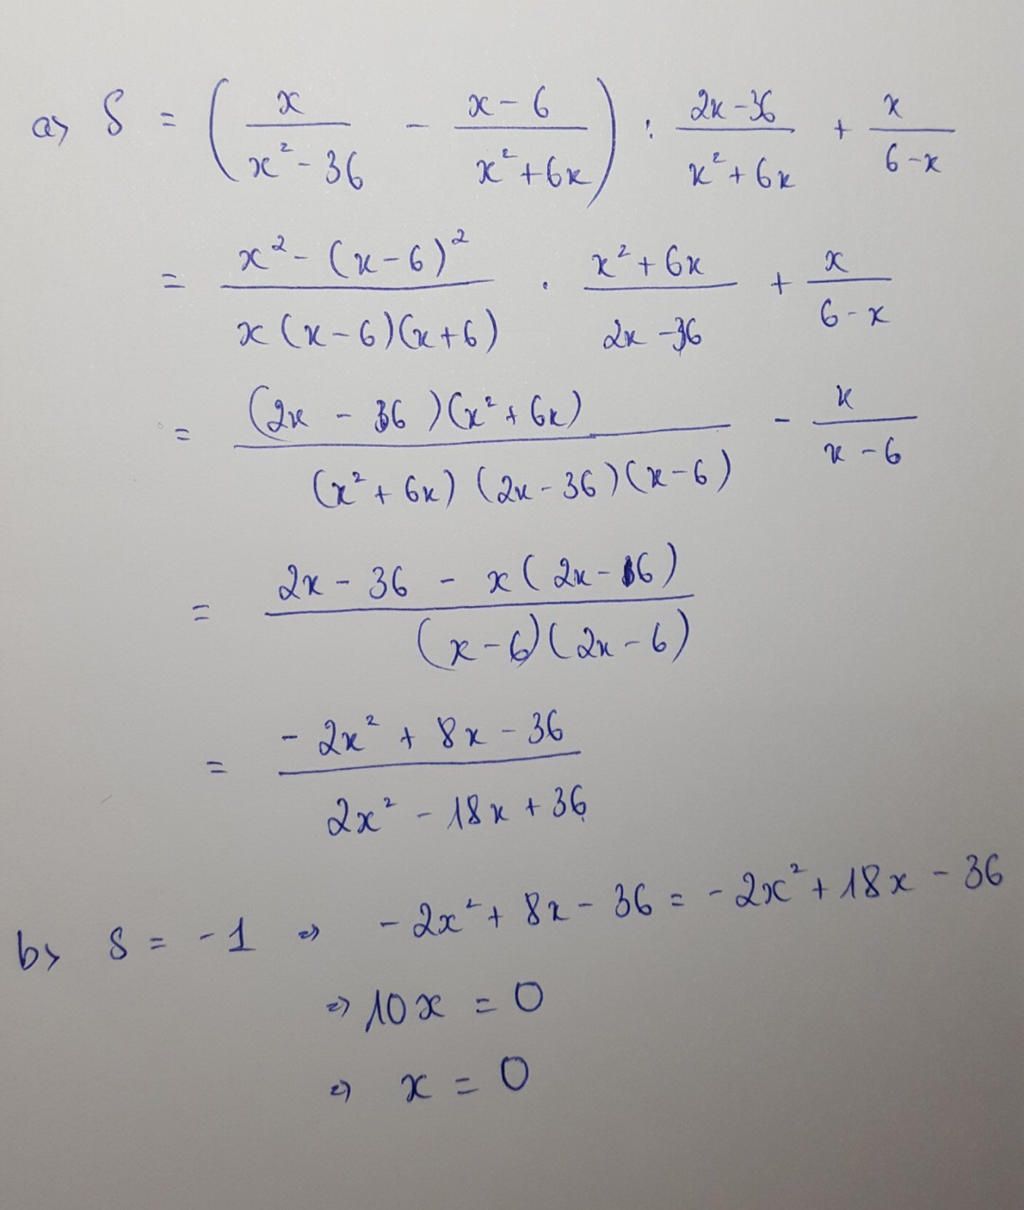 a) S = ( x / (x² - 36) - (x - 6) / (x² + 6x) ) : (2x - 36) / (x² + 6x) + x / (6 - x)
= (x² - (x - 6)²) / (x (x - 6)(x + 6)) . (x² + 6x) / (2x - 36) + x / (6 - x)
= (2x - 36)(x² + 6x) / ((x² + 6x) (2x - 36)(x - 6)) - x / (x - 6)
= (2x - 36 - x(2x - 16)) / ((x - 6)(2x - 6))
= (-2x² + 8x - 36) / (2x² - 18x + 36)
b) S = -1 => -2x² + 8x - 36 = -2x² + 18x - 36
=> 10x = 0
=> x = 0